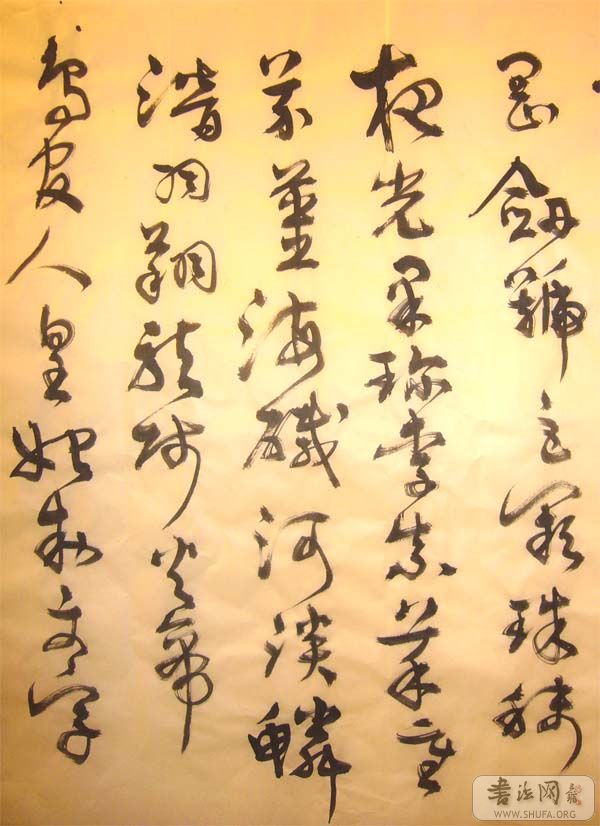 岡劍號巨闕珠稱
夜光果珍李柰菜重
芥薑海醎河淡鱗
潛羽翔龍師火帝
鳥官人皇始制文字
書法网
WWW.SHUFA.ORG